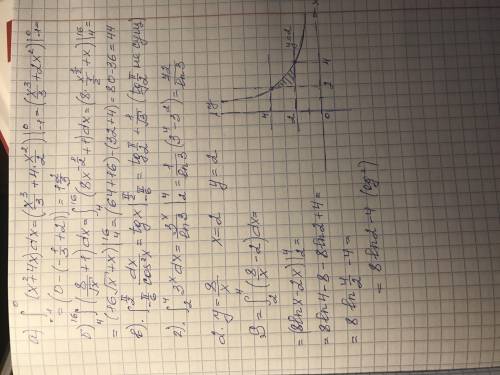 а) ∫₋₁⁰ (x²+4x)dx = (x³/3 + 4·x²/2)|₋₁⁰ = (x³/3 + 2x²)|₋₁⁰
= (0 - (-1/3 + 2)) =
б) ∫₄¹⁶ (8/√x + 1)dx = ∫₄¹⁶ (8x^(-1/2) + 1)dx = (8· + x)|₄¹⁶ =
= (16√x + x)|₄¹⁶ = (64+16) - (32+4) = 80-36 = 44
в). dx/cos²x = tgx = tg π/2 + 1/√3 (tg π/2 не сущ)
г). ∫₂⁴ 3ˣdx = 3ˣ/ln3 |₂⁴ = 1/ln3 (3⁴-3²) = 72/ln3
2. y = 8/x x=2 y=2
S = ∫₂⁴ (8/x - 2)dx =
= (8lnx - 2x)|₂⁴ =
= 8ln4 - 8 - 8ln2 + 4 =
= 8 ln 4/2 - 4 =
= 8ln2 - 4 (ед²)
y
4
2
0
2
4
y=2
x